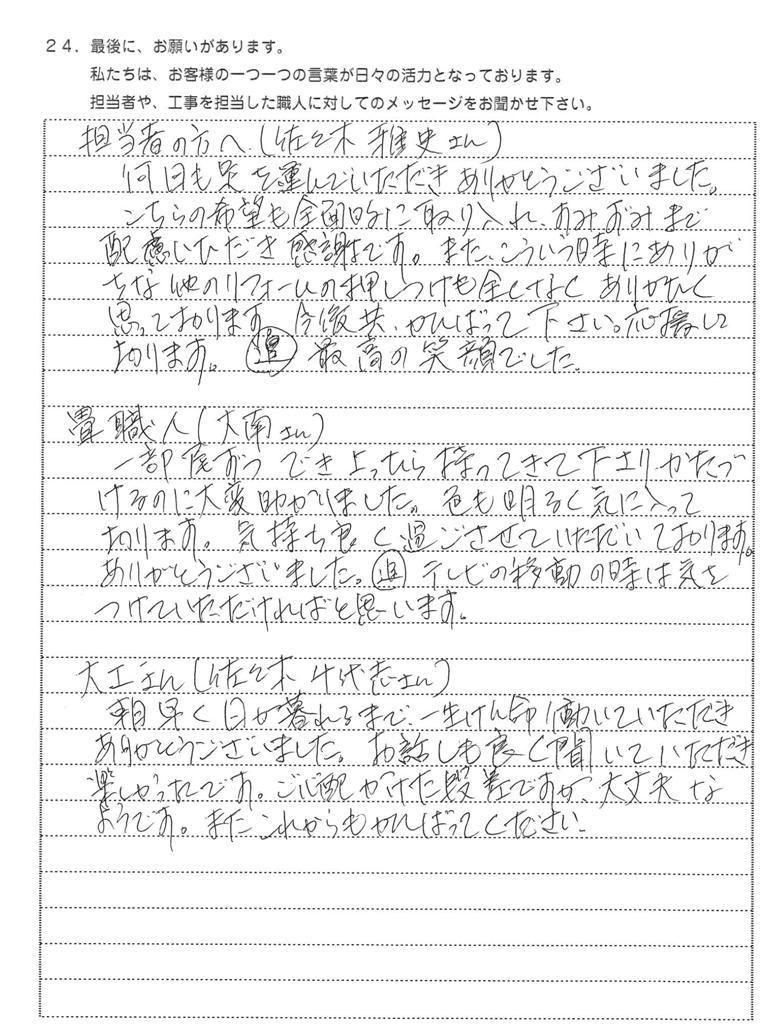 24．最後に、お願いがあります。
私たちは、お客様の一つ一つの言葉が日々の活力となっております。
担当者や、工事を担当した職人に対してのメッセージをお聞かせ下さい。
担当者の方へ（佐々木 雅史さん）
何日も足を運んでいただき ありがとうございました。
こちらの希望も全面的に取り入れ、おみおみまで
配慮いただき 感謝です。また、こういう時にありが
ちな 他のリフォームの押しつけも全くなく ありがたく
思っております。今後共、がんばって下さい。応援して
おります。 追 最高の笑顔でした。
畳職人（大南さん）
一部屋ずつ でき上ったら 持ってきて下さり かたづ
けるのに大変助かりました。色も明るく気に入って
おります。気持ち良く過ごさせていただいております。
ありがとうございました。追 テレビの移動の時は気を
つけていただければと思います。
大工さん（佐々木 千代志さん）
朝早く日が暮れるまで、一生けん命働いていただき
ありがとうございました。お話しも良く聞いていただき
楽しかったです。ご心配かけた段差ですが、大丈夫な
ようです。またこれからもがんばってください。